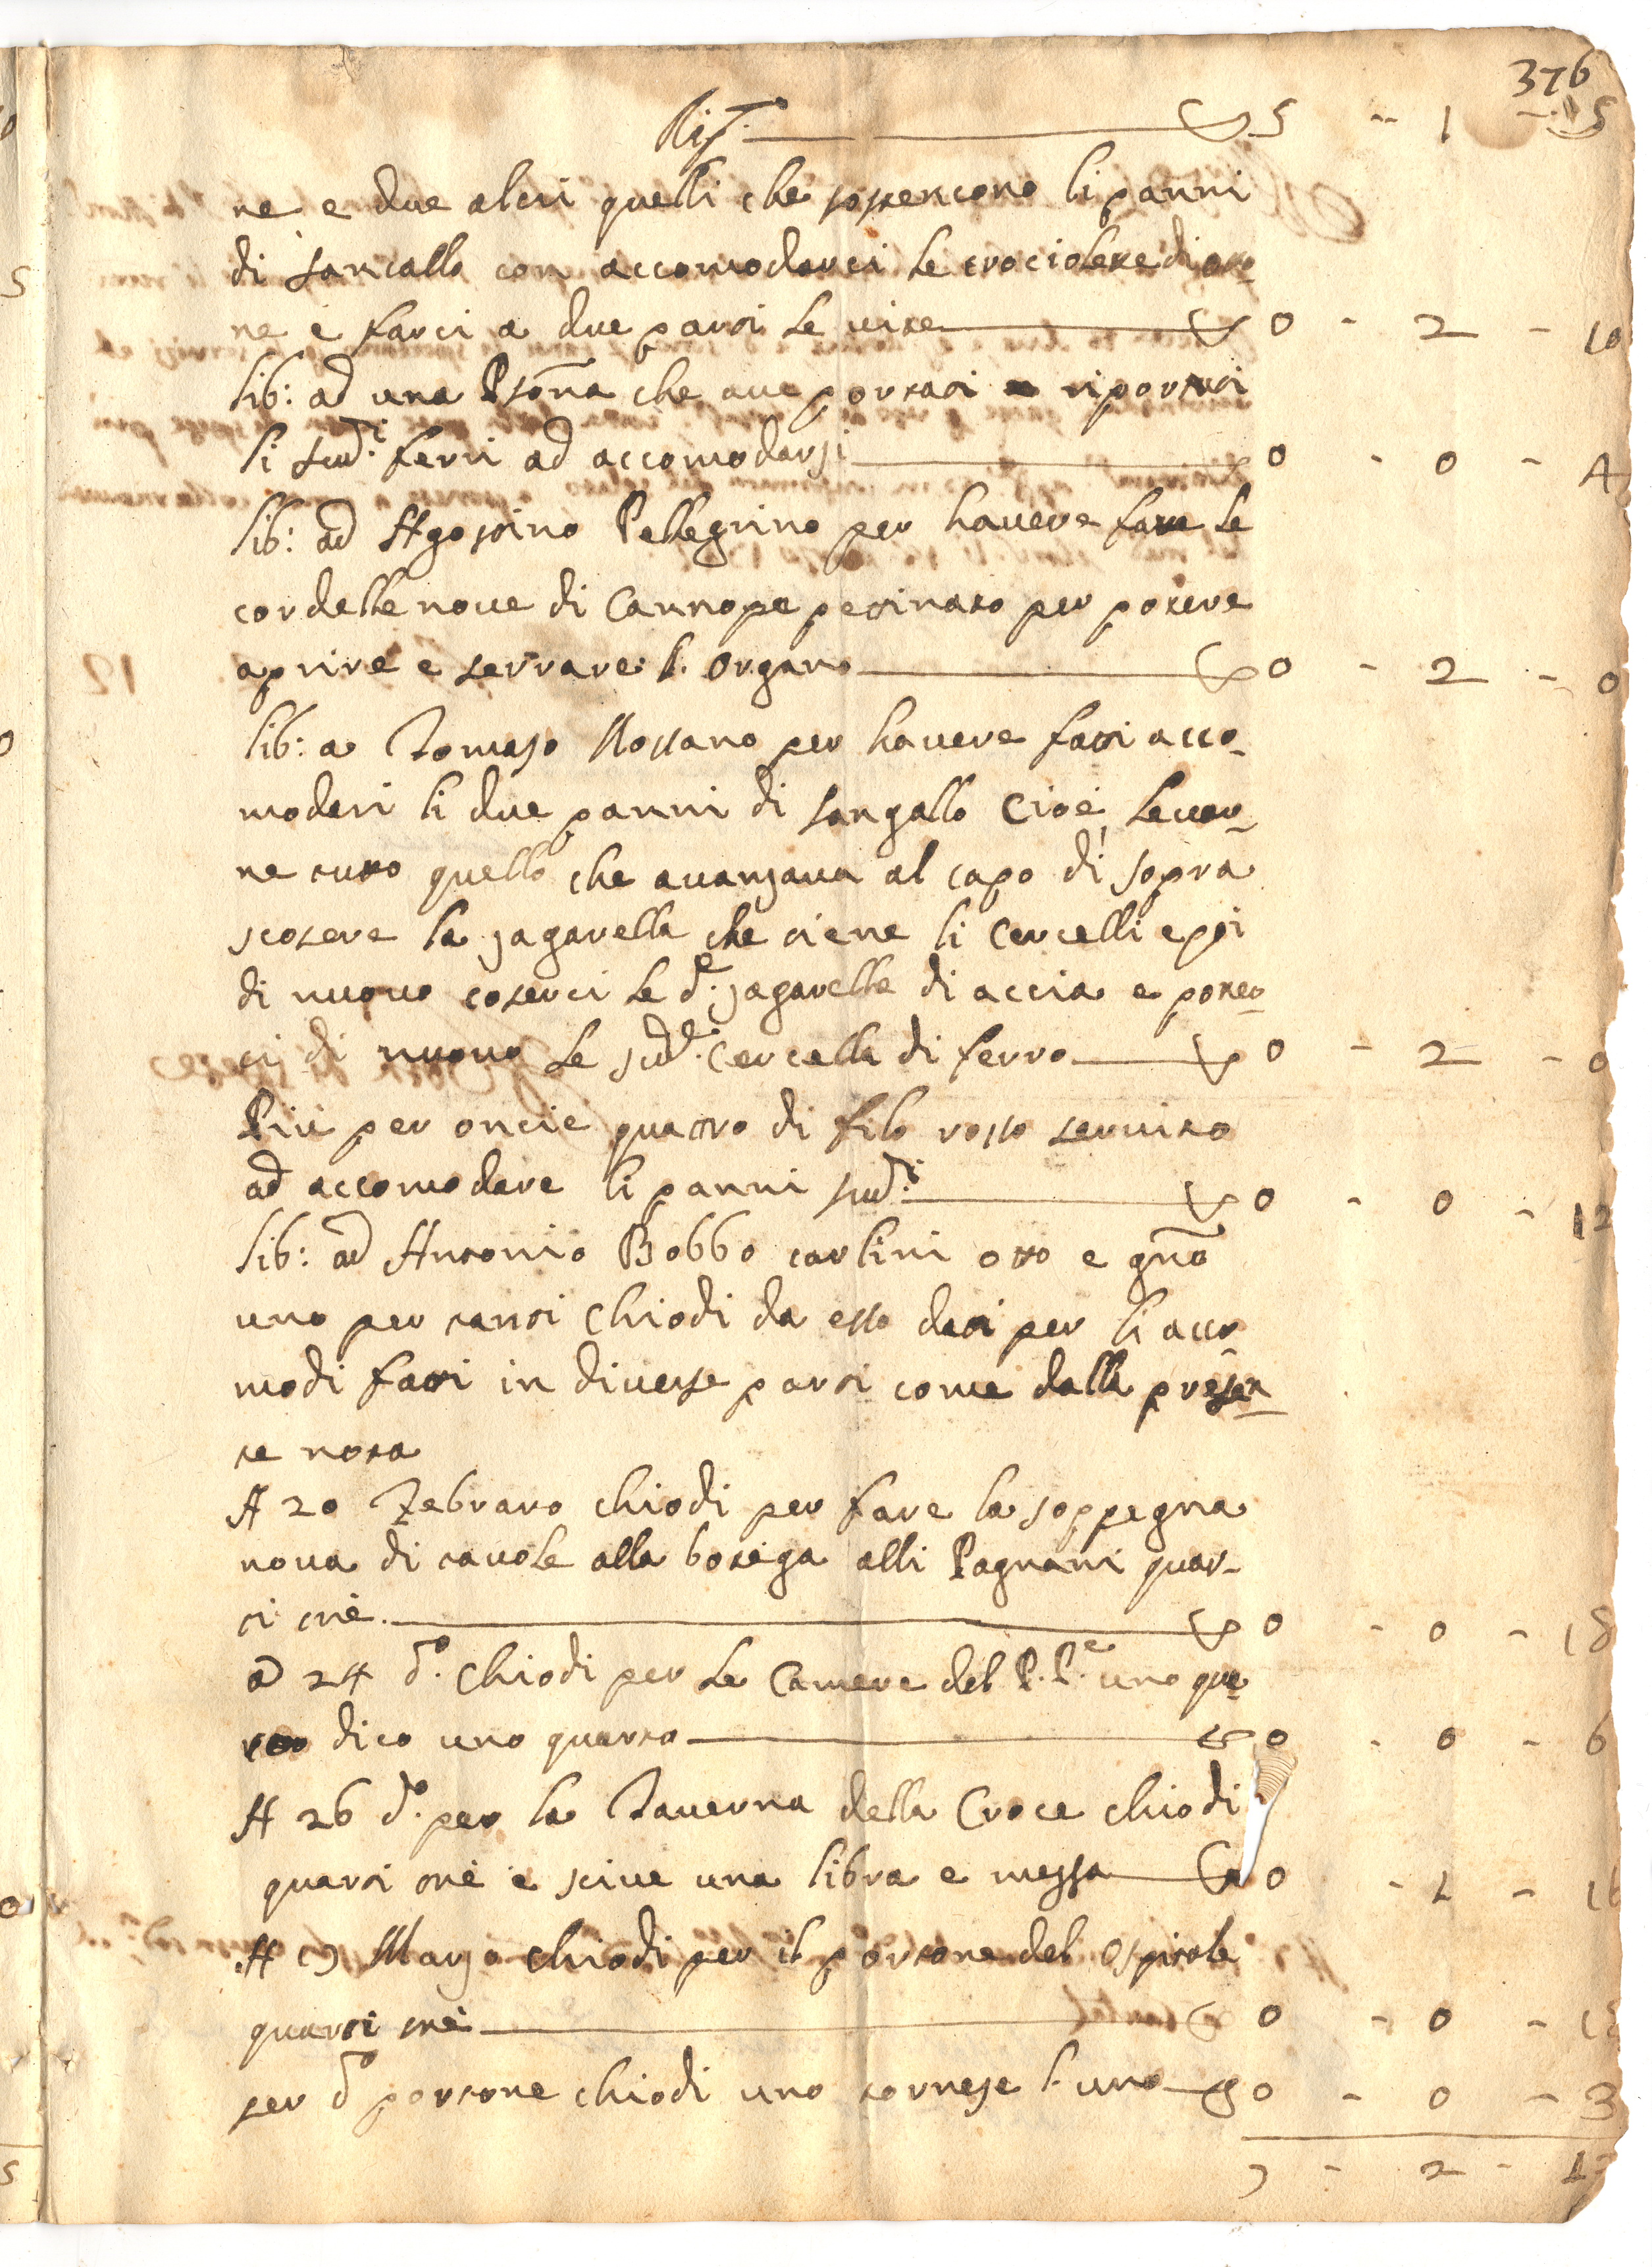 376
Rip.to 5 - 1 - 15
ne e due altri quelli che sostentono li panni
di sancallo con accomodarci le crociolette di oto-
ne e farci a due parti le vite 0 - 2 - 10
lib: ad una Psona che ave portati riportati
li sud.i ferri ad accomodarsi 0 - 0 - 4
lib: ad Agostino Pellegrino per havere fatte le
cordelle nove di Cannope pettinato per potere
aprire e serrare l. organo 0 - 2 - 0
lib: a Tomaso Rossano per havere fatti acco-
modari li due panni di sangallo cioè levar-
ne tutto quello che avanzava al capo di sopra
scosere la zagarella che tiene li cercelli e poi
di nuovo coserci le d.e zagarelle di accia e poner-
ci di nuovo le sud.e cercella di ferro 0 - 2 - 0
Più per oncie quattro di filo rosso servito
ad accomodare li panni sud.i 0 - 0 - 12
lib: ad Antonio Bobbo carlini otto e gno
uno per tanti chiodi da esso dati per li acco-
modi fatti in diverse parti come dalla presen-
te nota
A 20 Febraro chiodi per fare la soppegna
nova di tavole alla botega alli Pagnani quar-
ti trè 0 - 0 - 18
a 24 d.o chiodi per le Camere del P. P.e uno qua-
rto dico uno quarto 0 - 0 - 6
A 26 d.o per la Taverna della Croce chiodi
quarti trè e scive una libra e mezza 0 - 1 - 16
A 9 Marzo chiodi per il portone del ospitale
quarti trè 0 - 0 - 18
per d.o portone chiodi uno tornese l. uno 0 - 0 - 3
2 - 13